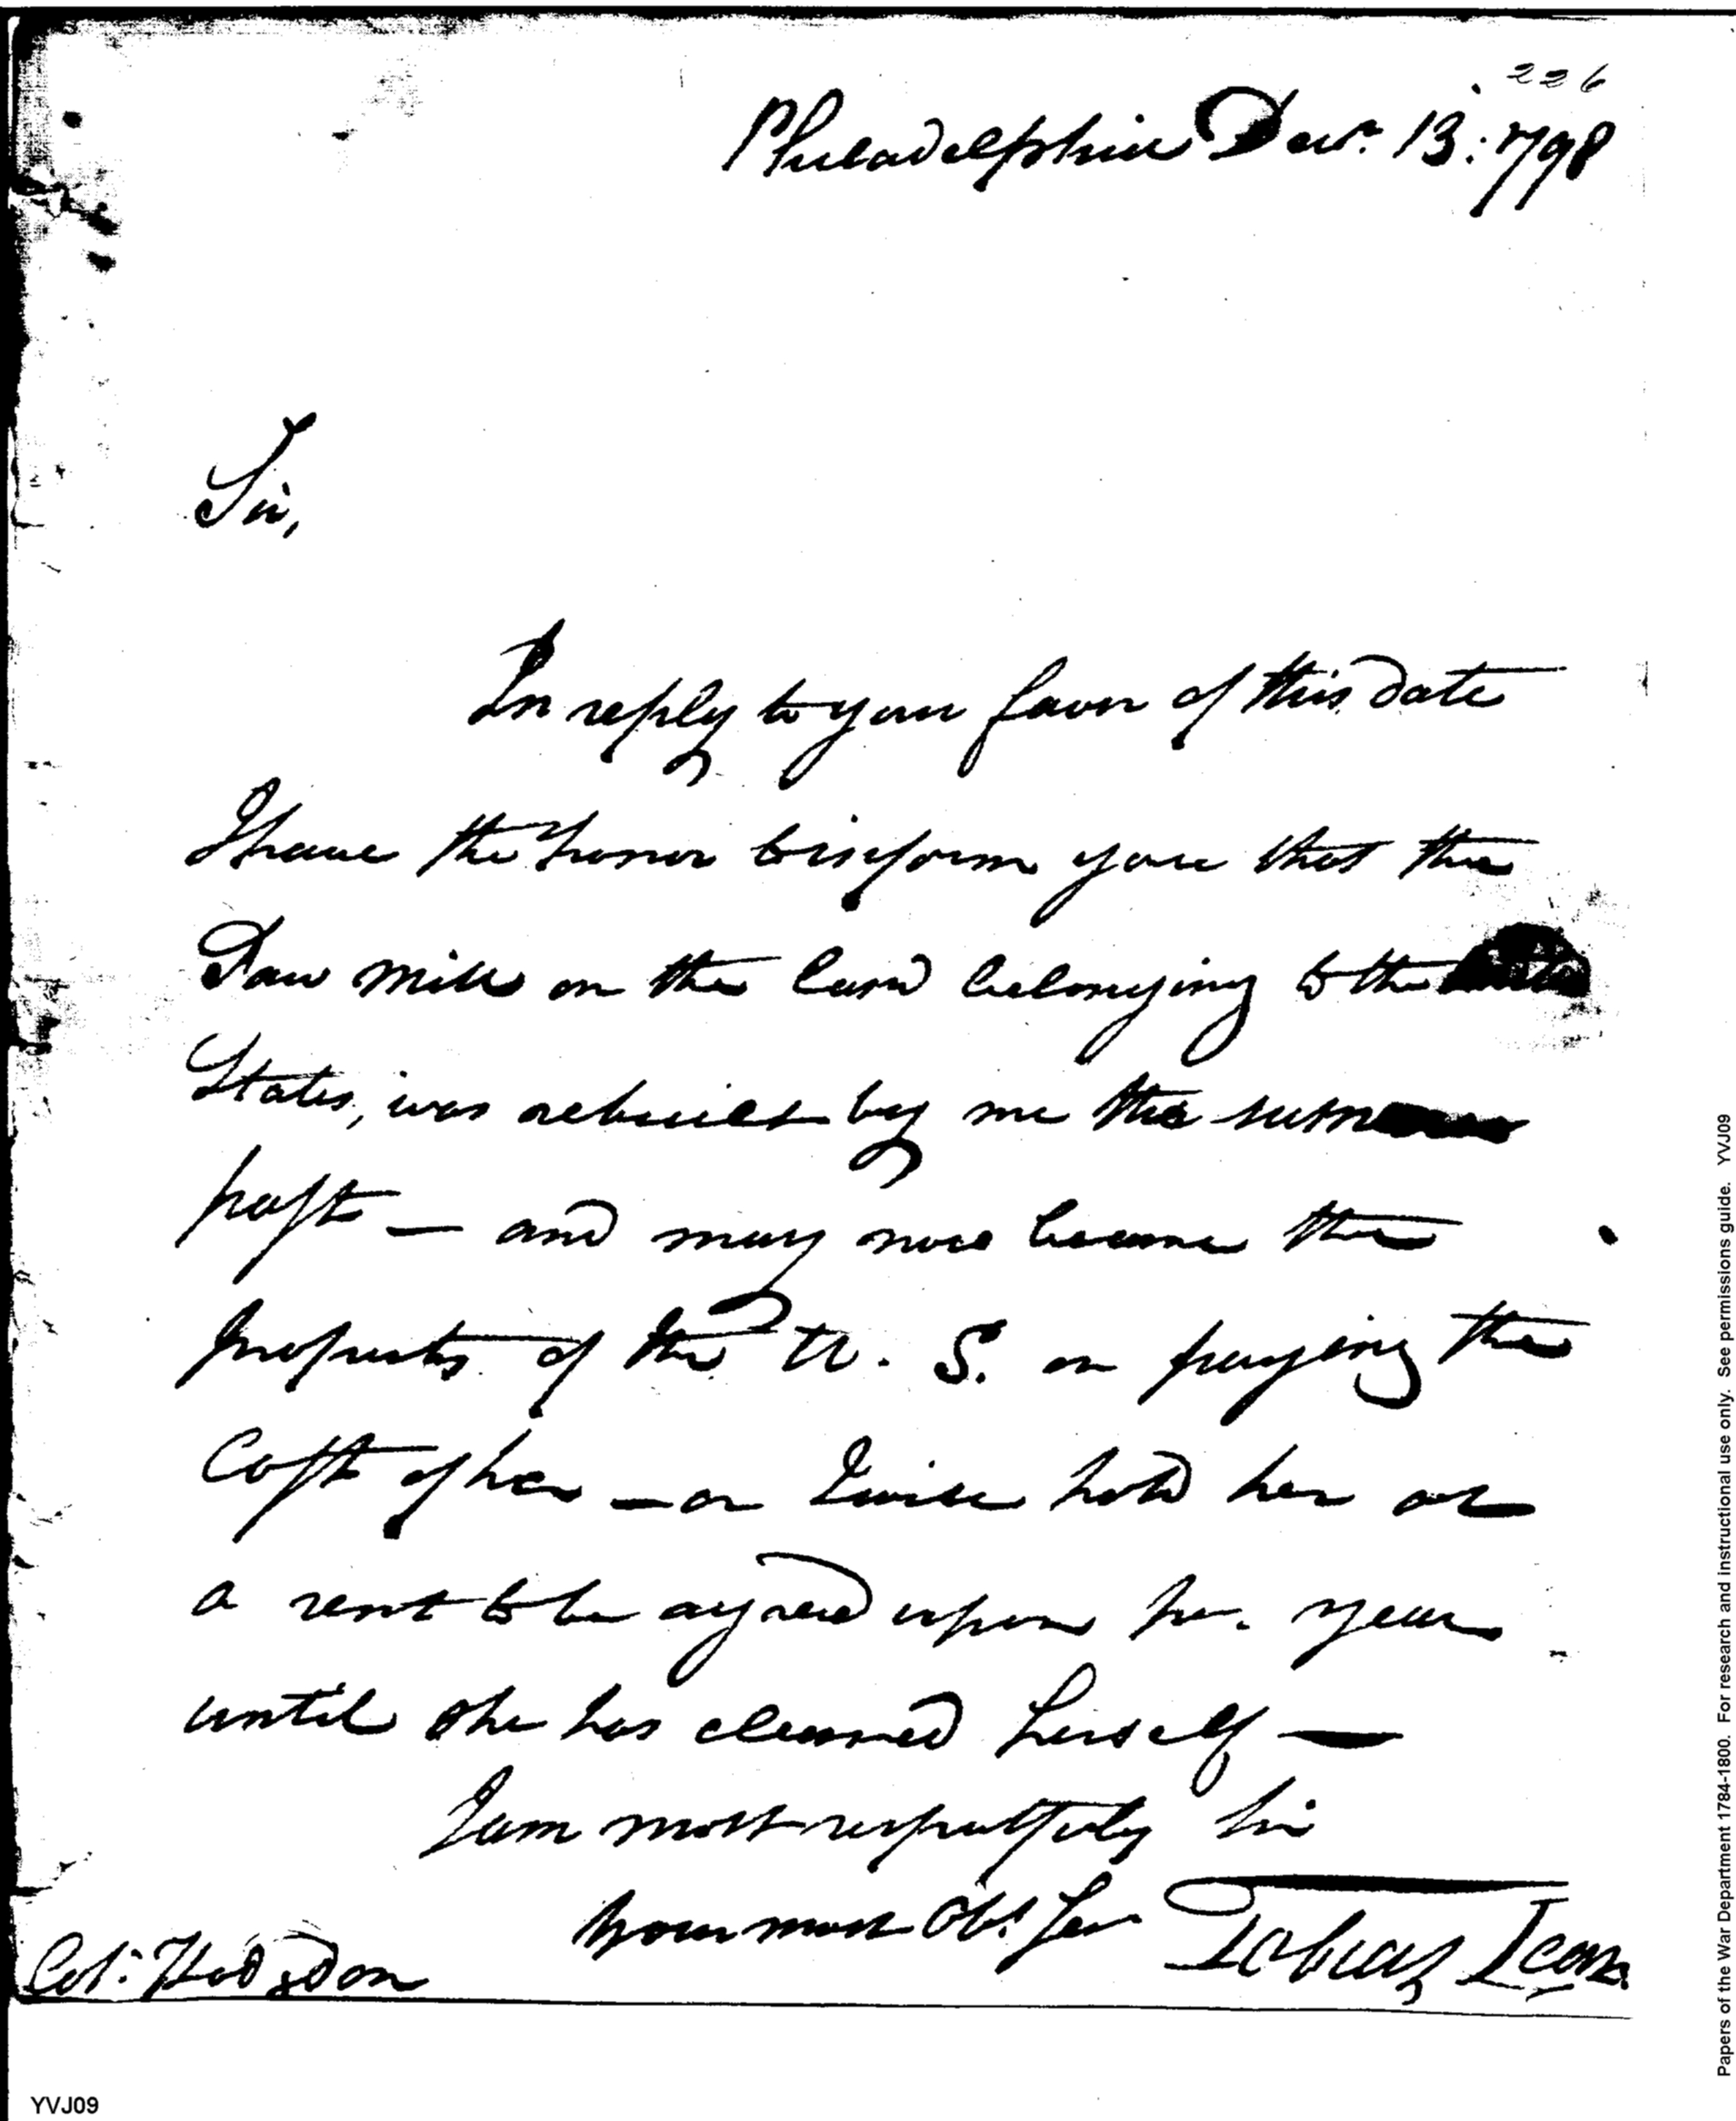 226
Philadelphia Decr. 13: 1798
Sir,
In reply to your favor of this date
I have the honor to inform you that the
Saw mill on the land belonging to the
States, was rebuilt by me the summer
past — and may now become the
property of the U. S. on paying the
Cost of her — or I will hold her at
a rent to be agreed upon pr. year
until she has cleared herself —
I am most respectfuly Sir
Your most Obt. Ser
Tobias Lear.
Col: Hodgdon
YVJ09
Papers of the War Department 1784-1800. For research and instructional use only. See permissions guide. YVJ09